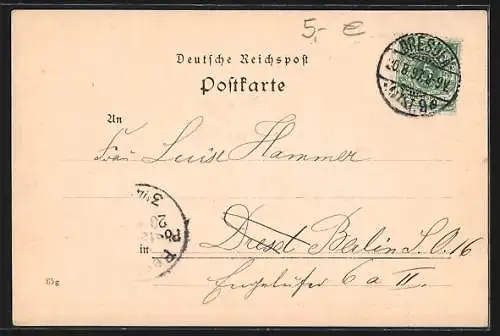 5,- €
Deutsche Reichspost
Postkarte
An
Frau Luise Hammer
in ~~Dresd~~ Berlin S.O. 16
Engelufer 6a II.